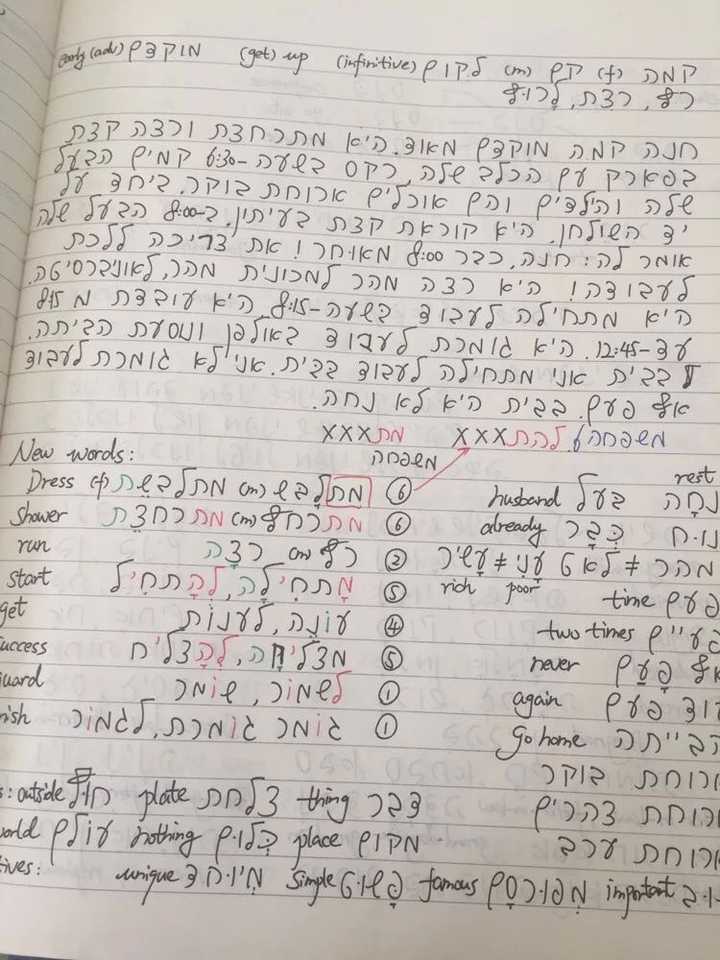 קמה (f) קם (m) לקום (infinitive) (get) up מוקדם (adv)
רץ, רצת, לרוץ
חנה קמה מוקדם מאוד. היא מתרחצת ורצה קצת
בפארק עם הכלב שלה, רקס בשעה -6:30 קמים הבעל
שלה והילדים והם אוכלים ארוחת בוקר, ביחד על
יד השולחן. היא קוראת קצת בעיתון, ב-8:00 הבעל שלה
אומר לה: חנה, כבר 8:00 מאוחר! את צריכה ללכת
לעבודה! היא רצה מהר למכונית מהר, לאוניברסיטה.
היא מתחילה לעבוד בשעה -8:15, היא עובדת מ 8:15
עד -12:45. היא גומרת לעבוד באולפן ונוסעת הביתה.
בבית אני מתחילה לעבוד בבית. אני לא גומרת לעבוד
אף פעם. בבית היא לא נחה.
משפחה 6 להתXXX מתXXX
משפחה
New words:
Dress (f) מתלבשת (m) מתלבש ⑥ husband בעל rest נחה
Shower מתרחצת (m) מתרחץ ⑥ already כבר נו.ח
run רצה (m) רץ ② מהר ≠ לאט עני ≠ עשיר
rich poor
start מתחילה, להתחיל ⑤ time פעם
get עונה, לענות ④ two times
מצליחה, להצליח ⑤ never אף פעם
שומר, לשמור ① again
גומר גומרת, לגמור ① go home
בוקר
צהריים
ערב
outside חוץ plate צלחת thing דבר
עולם nothing כלום place מקום
unique מיוחד simple פשוט famous מפורסם important